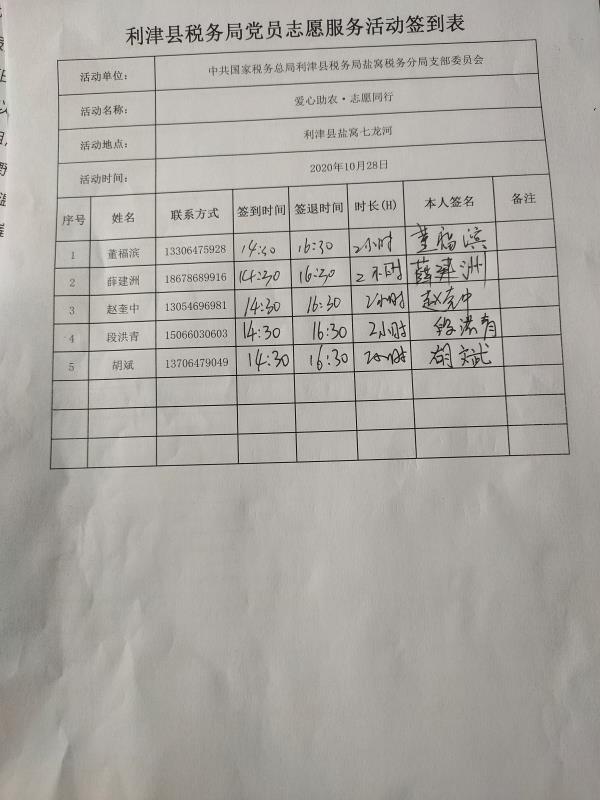 利津县税务局党员志愿服务活动签到表
活动单位： 中共国家税务总局利津县税务局盐窝税务分局支部委员会
活动名称： 爱心助农·志愿同行
活动地点： 利津县盐窝七龙河
活动时间： 2020年10月28日
序号 姓名 联系方式 签到时间 签退时间 时长(H) 本人签名 备注
1 董福滨 13306475928 14:30 16:30 2小时 董福滨
2 薛建洲 18678689916 14:30 16:30 2小时 薛建洲
3 赵奎中 13054696981 14:30 16:30 2小时 赵奎中
4 段洪青 15066030603 14:30 16:30 2小时 段洪青
5 胡斌 13706479049 14:30 16:30 2小时 胡文武